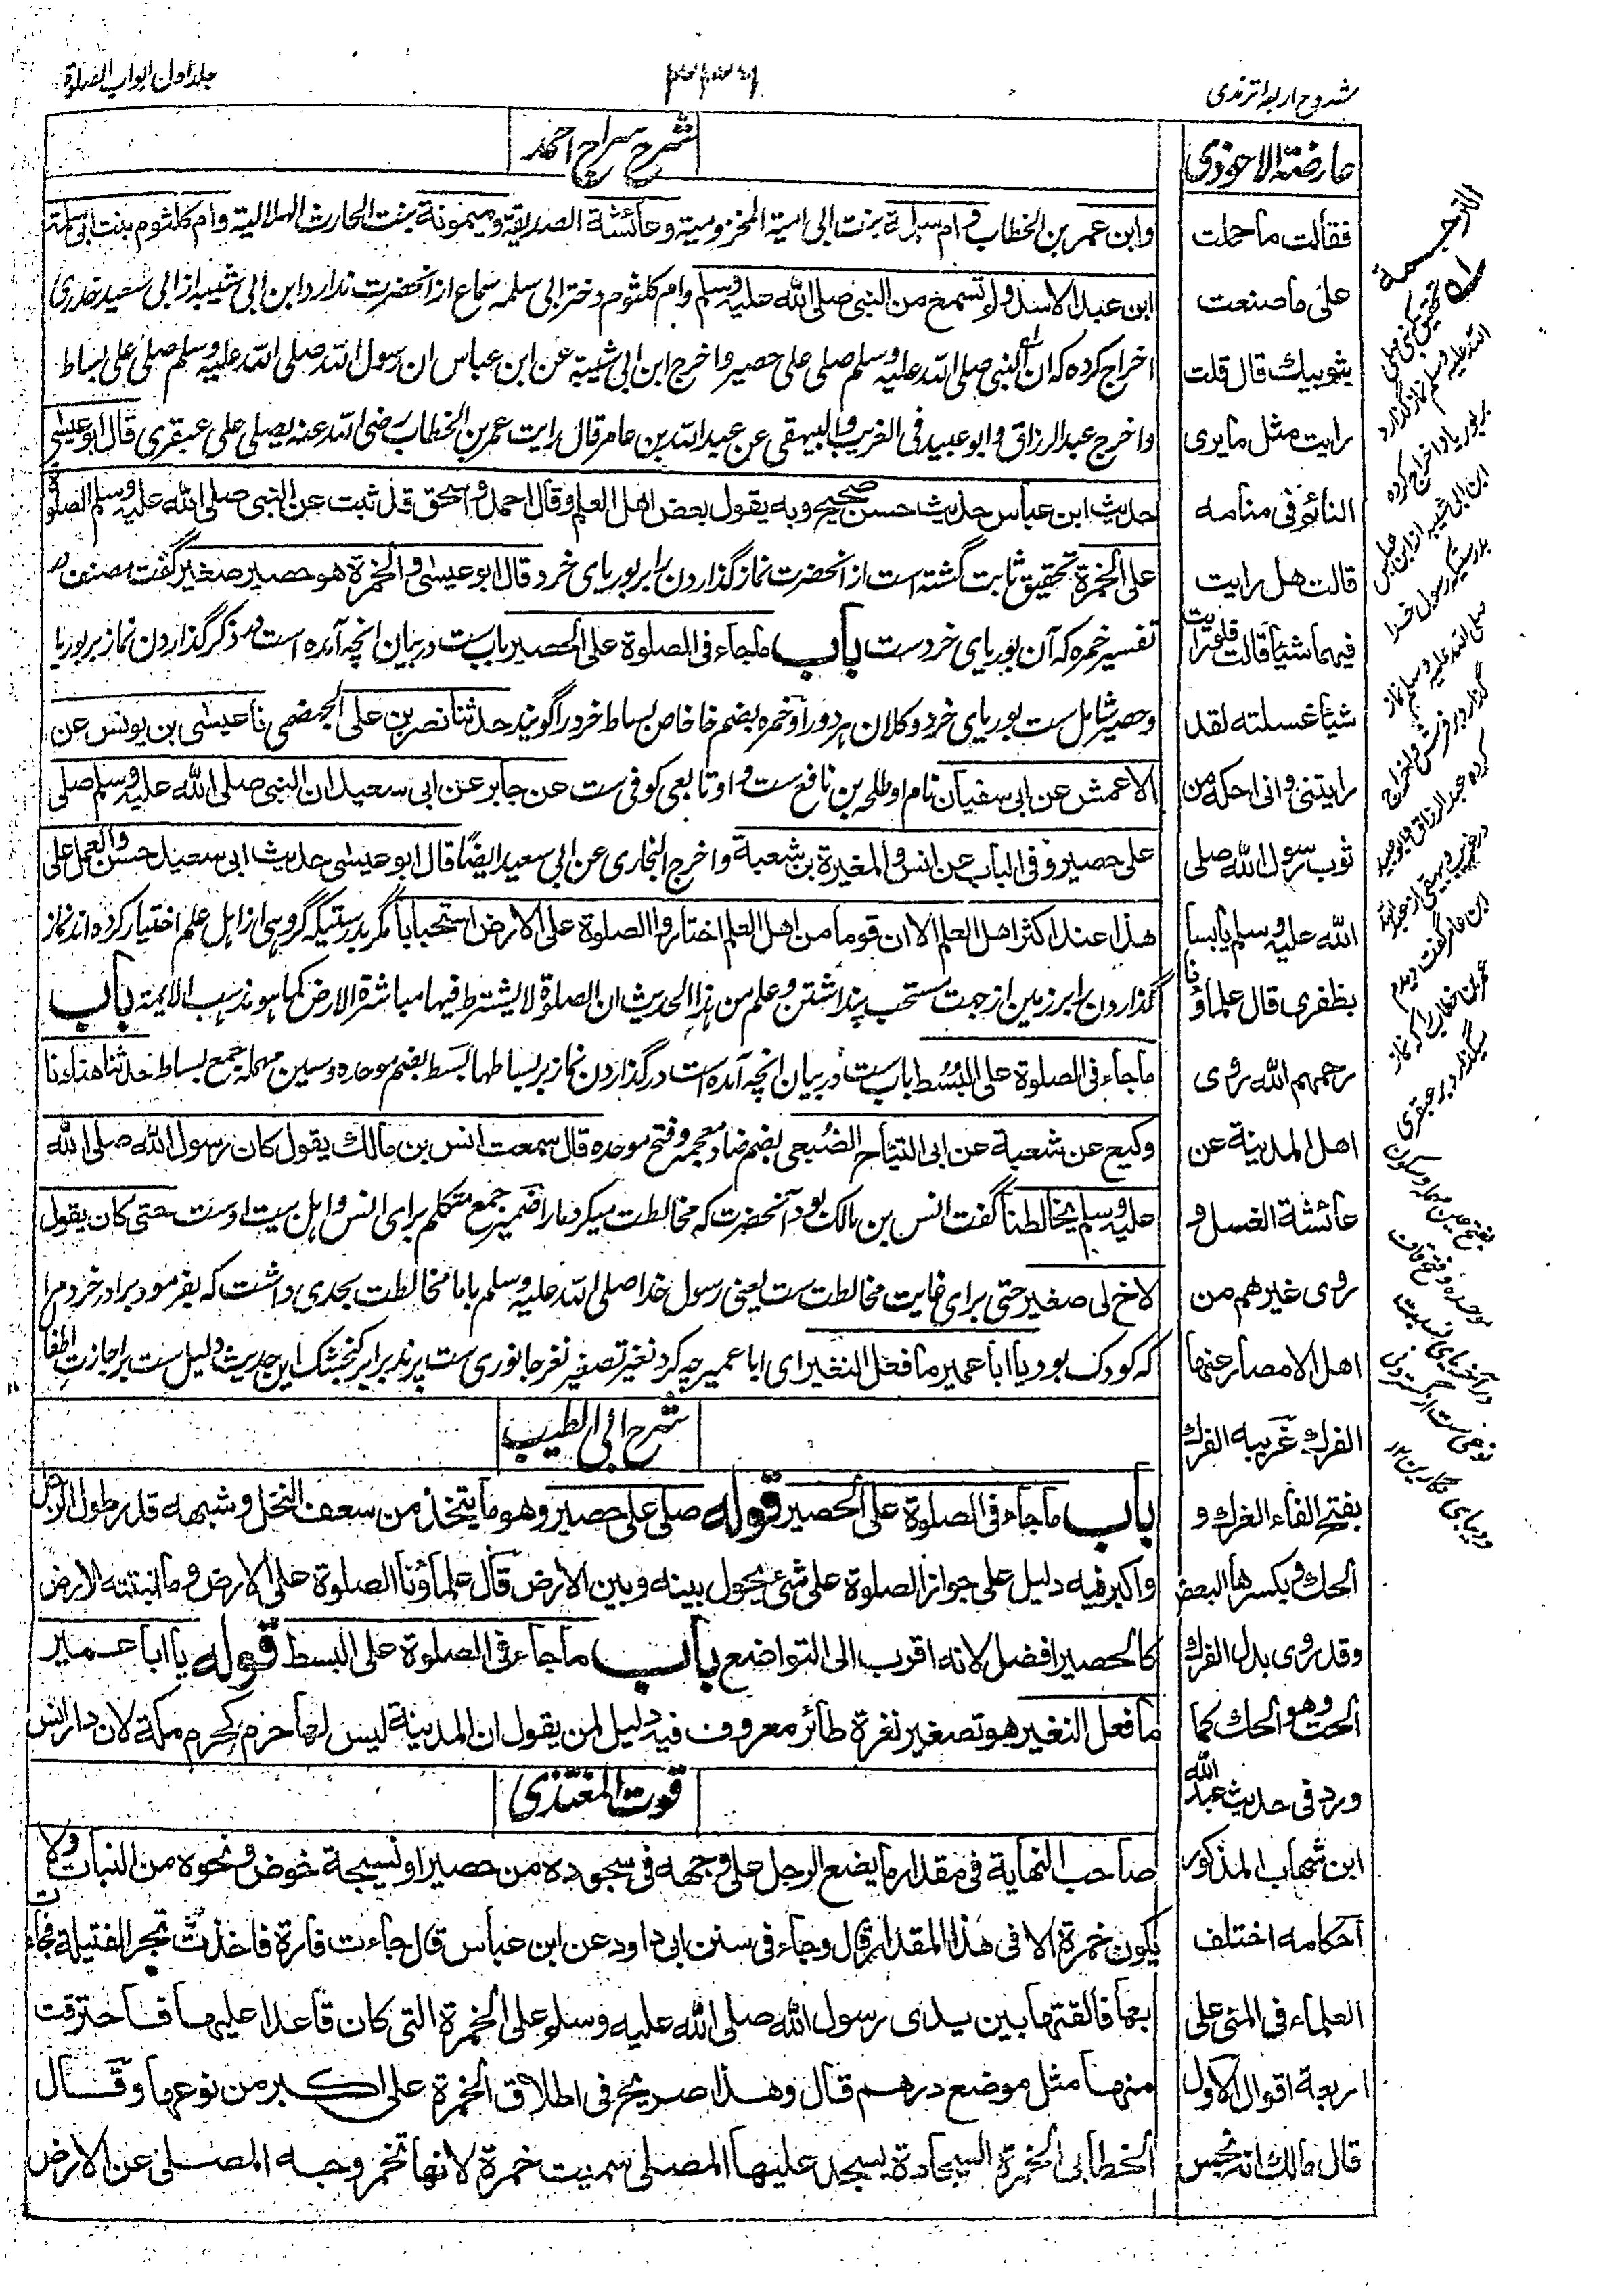 شروح اربعه ترمذی
جلد اول ابواب الصلوة
عارضة الاحوذی
فقالت ما حملت
علی ما صنعت
بثوبیك قال قلت
رایت مثل ما یری
النائم فی منامه
قالت هل رایت
فیهما شیئا قالت فلو رایت
شیئا غسلته لقد
رایتنی وانی احکه من
ثوب رسول الله صلی
الله علیه وسلم یابسا
بظفری قال علماؤنا
رحمهم الله روی
اهل المدینة عن
عائشة الغسل و
روی غیرهم من
اهل الامصار عنها
الفرك غریبه الفرك
بفتح الفاء الفرك و
الحك وبکسرها البعض
وقد روی بدل الفرك
الحت وهو الحك کما
ورد فی حدیث عبد الله
ابن شهاب المذکور
احکامه اختلف
العلماء فی المنی علی
اربعة اقوال الاول
قال مالك انه نجس
شرح سراج احمد
وابن عمر بن الخطاب وام سلمة بنت ابی امیة المخزومیة وعائشة الصدیقة ومیمونة بنت الحارث الهلالیة وام کلثوم بنت ابی سلمة
ابن عبد الاسد ولم تسمع من النبی صلی الله علیه وسلم وام کلثوم دختر ابی سلمه سماع از آنحضرت ندارد ابن ابی شیبه از ابی سعید خدری
اخراج کرده که ان النبی صلی الله علیه وسلم صلی علی حصیر واخرج ابن ابی شیبة عن ابن عباس ان رسول الله صلی الله علیه وسلم صلی علی بساط
واخرج عبد الرزاق وابو عبید فی الغریب والبیهقی عن عبد الله بن عامر قال رایت عمر بن الخطاب رضی الله عنه یصلی علی عبقری قال ابو عیسی
حدیث ابن عباس حدیث حسن صحیح وبه یقول بعض اهل العلم وقال احمد واسحق قد ثبت عن النبی صلی الله علیه وسلم الصلوة
علی الخمرة تحقیق ثابت گشته است از آنحضرت نماز گذاردن برابر بوریای خرد قال ابو عیسی والخمرة هو حصیر صغیر گفت مصنف در
تفسیر خمره که آن بوریای خردست باب ماجاء فی الصلوة علی الحصیر باب ست در بیان آنچه آمده است در ذکر گذاردن نماز بر بوریا
وحصیر شامل ست بوریای خرد وکلان هر دو را وخمره بضم خا خاص بساط خرد را گویند حدثنا نصر بن علی الجهضمی نا عیسی بن یونس عن
الاعمش عن ابی سفیان نام او طلحه بن نافع ست و او تابعی کوفی ست عن جابر عن ابی سعید ان النبی صلی الله علیه وسلم صلی
علی حصیر وفی الباب عن انس والمغیرة بن شعبة واخرج البخاری عن ابی سعید ایضا قال ابو عیسی حدیث ابی سعید حسن والعمل علی
هذا عند اکثر اهل العلم الا ان قوما من اهل العلم اختاروا الصلوة علی الارض استحبابا مگر بدرستیکه گروهی از اهل علم اختیار کرده اند نماز
گذاردن برابر زمین از جهت مستحب پنداشتن وعلم من هذا الحدیث ان الصلوة لا یشترط فیها مباشرة الارض کما هو مذهب الایمة باب
ماجاء فی الصلوة علی البُسُط باب ست در بیان آنچه آمده است در گذاردن نماز بر بساطها بسط بضم موحده وسین مهمله جمع بساط حدثنا هناد نا
وکیع عن شعبة عن ابی التیاح الضُبعی بضم ضاد معجمه وفتح موحده قال سمعت انس بن مالك یقول کان رسول الله صلی الله
علیه وسلم یخالطنا گفت انس بن مالک بود آنحضرت که مخالطت میکرد ما را ضمیر جمع متکلم برای انس واهل بیت اوست حتی کان یقول
لاخ لی صغیر حتی برای غایت مخالطت ست یعنی رسول خدا صلی الله علیه وسلم با ما مخالطت بحدی داشت که بفرمود برادر خرد مرا
که کودک بود یا ابا عمیر ما فعل النغیر ای ابا عمیر چه کرد نغیر تصغیر نغر جانوری ست پرنده برابر کنجشک این حدیث دلیل ست بر اجازت اطفا
شرح ابی الطیب
باب ماجاء فی الصلوة علی الحصیر قوله صلی علی حصیر وهو ما یتخذ من سعف النخل وشبهه قدر طول الرجل
واکبر فیه دلیل علی جواز الصلوة علی شیء یحول بینه وبین الارض قال علماؤنا الصلوة علی الارض وما انبتته الارض
کالحصیر افضل لانه اقرب الی التواضع باب ماجاء فی الصلوة علی البسط قوله یا ابا عمیر
ما فعل النغیر هو تصغیر نغرة طائر معروف فیه دلیل لمن یقول ان المدینة لیس لها حرم کحرم مکة لان دار انس
قوت المغتذی
صاحب النهایة فی مقدار ما یضع الرجل علی وجهه فی سجوده من حصیر او نسیجة خوض ونحوه من النبات ولا
یکون خمرة الا فی هذا المقدار قال وجاء فی سنن ابی داود عن ابن عباس قال جاءت فارة فاخذت تجر الفتیلة فجاءت
بها فالقتها بین یدی رسول الله صلی الله علیه وسلم علی الخمرة التی کان قاعدا علیها فاحترقت
منها مثل موضع درهم قال وهذا صریح فی اطلاق الخمرة علی اکبر من نوعها وقال
الخطابی الخمرة السجادة یسجد علیها المصلی سمیت خمرة لانها تخمر وجه المصلی عن الارض
الترجمة
تحقیق نبی صلی
الله علیه وسلم نماز گذارد
بر بوریا واخراج کرده
ابن ابی شیبه از ابن عباس
بدرستیکه رسول خدا
صلی الله علیه وسلم نماز
گذارد بر فرش واخراج
کرده عبد الرزاق وابو عبید
در غریب وبیهقی از عبد الله
ابن عامر گفت دیدم
عمر بن خطاب را که نماز
میگذارد بر عبقری